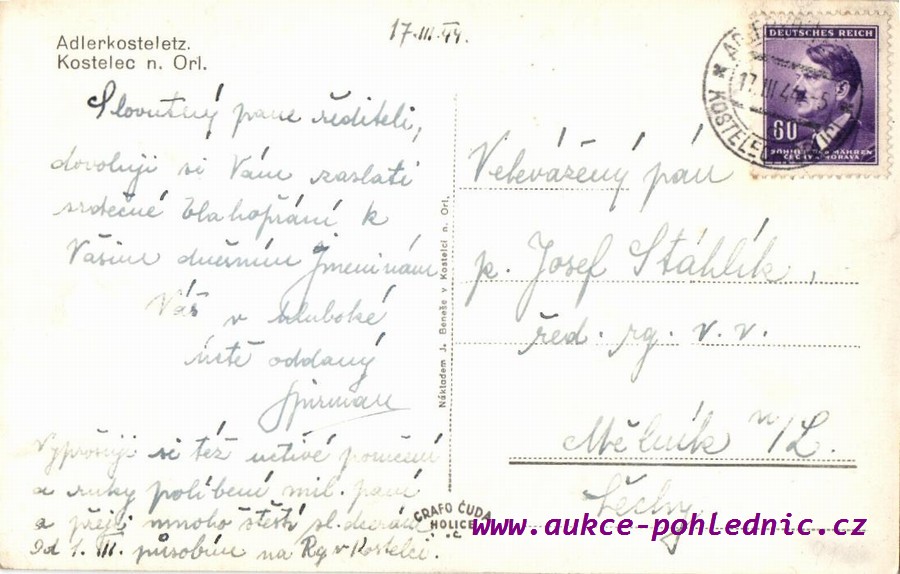 Adlerkosteletz.
Kostelec n. Orl.
17.III.44.
Slovutný pane řediteli,
dovoluji si Vám zaslati
srdečné blahopřání k
Vašim dnešním jmeninám
Váš v hluboké
úctě oddaný
Vyprošuji si též uctivé poručení
a ruky políbení mil. paní
a přeji mnoho štěstí sl. dceráni
Od 1. III. působím na Rg v Kostelci.
Nákladem J. Beneše v Kostelci n. Orl.
GRAFO ČUDA
HOLICE
DEUTSCHES REICH
60
BÖHMEN UND MÄHREN
ČECHY A MORAVA
17.III.44 -5
KOSTELEC
Velevážený pán
p. Josef Stáhlík,
řed. rg. v. v.
Mělník n/L.
Čechy
www.aukce-pohlednic.cz